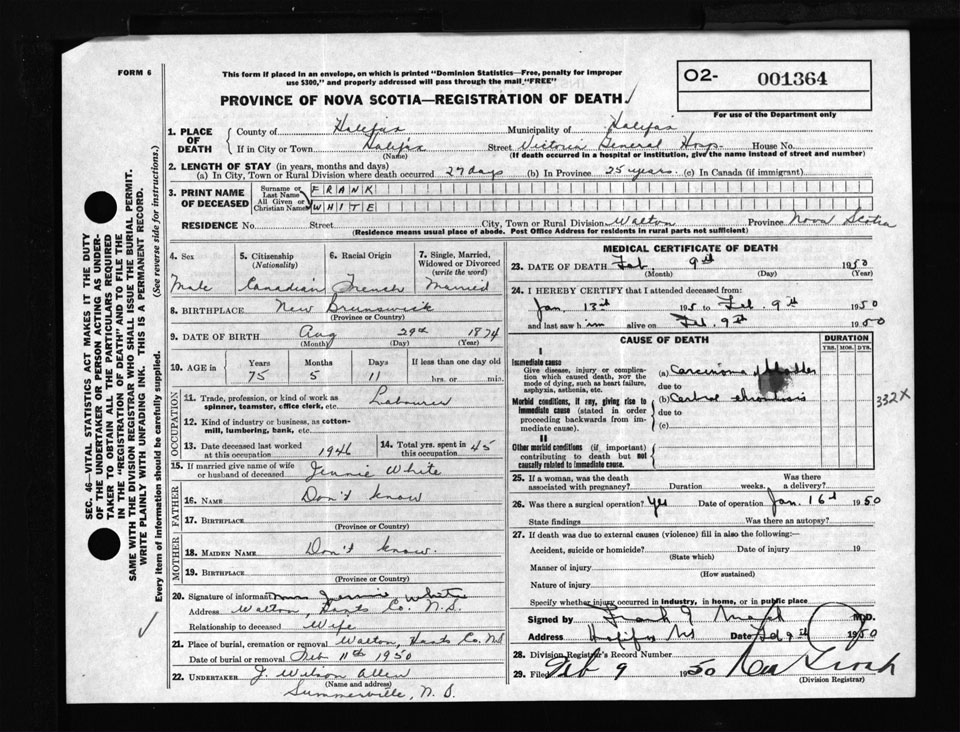 FORM 6
This form if placed in an envelope, on which is printed "Dominion Statistics—Free, penalty for improper
use $300," and properly addressed will pass through the mail "FREE"
O2- 001364
For use of the Department only
PROVINCE OF NOVA SCOTIA—REGISTRATION OF DEATH
1. PLACE OF DEATH
County of Halifax Municipality of Halifax
If in City or Town Halifax Street Victoria General Hosp House No.
(Name) (If death occurred in a hospital or institution, give the name instead of street and number)
2. LENGTH OF STAY (in years, months and days)
(a) In City, Town or Rural Division where death occurred 27 days (b) In Province 25 years. (c) In Canada (if immigrant)
3. PRINT NAME OF DECEASED
Surname or Last Name FRANK
All Given or Christian Names WHITE
RESIDENCE No. Street City, Town or Rural Division Walton Province Nova Scotia
(Residence means usual place of abode. Post Office Address for residents in rural parts not sufficient)
4. Sex Male
5. Citizenship (Nationality) Canadian
6. Racial Origin French
7. Single, Married, Widowed or Divorced (write the word) Married
8. BIRTHPLACE New Brunswick
(Province or Country)
9. DATE OF BIRTH Aug 29th 1874
(Month) (Day) (Year)
10. AGE in Years Months Days If less than one day old
75 5 11 hrs. or min.
OCCUPATION
11. Trade, profession, or kind of work as spinner, teamster, office clerk, etc. Labourer
12. Kind of industry or business, as cotton-mill, lumbering, bank, etc.
13. Date deceased last worked at this occupation 1946
14. Total yrs. spent in 45
15. If married give name of wife or husband of deceased Jennie White
FATHER
16. NAME Don't know
17. BIRTHPLACE
(Province or Country)
MOTHER
18. MAIDEN NAME Don't know.
19. BIRTHPLACE
(Province or Country)
20. Signature of informant Mrs Jennie White
Address Walton, Hants Co. N.S.
Relationship to deceased Wife
21. Place of burial, cremation or removal Walton, Hants Co. N.S.
Date of burial or removal Feb 11th 1950
22. UNDERTAKER J. Wilson Allen
(Name and address)
Summerville, N.S.
MEDICAL CERTIFICATE OF DEATH
23. DATE OF DEATH Feb 9th 1950
(Month) (Day) (Year)
24. I HEREBY CERTIFY that I attended deceased from:
Jan. 13th 195 to Feb. 9th 1950
and last saw him alive on Feb. 9th 1950
CAUSE OF DEATH
DURATION
YRS. MOS. DYS.
I
Immediate cause
Give disease, injury or complication which caused death, not the mode of dying, such as heart failure, asphyxia, asthenia, etc.
(a) Carcinoma of bladder
due to
Morbid conditions, if any, giving rise to immediate cause (stated in order proceeding backwards from immediate cause).
(b) Cerebral thrombosis
due to
(c)
332X
II
Other morbid conditions (if important) contributing to death but not causally related to immediate cause.
25. If a woman, was the death associated with pregnancy? Duration weeks. Was there a delivery?
26. Was there a surgical operation? Yes Date of operation Jan. 16th 1950
State findings Was there an autopsy?
27. If death was due to external causes (violence) fill in also the following:—
Accident, suicide or homicide? Date of injury 19
(State which)
Manner of injury
(How sustained)
Nature of injury
Specify whether injury occurred in industry, in home, or in public place
Signed by Frank G M.D.
Address Halifax NS Date Feb 9th 1950
28. Division Registrar's Record Number
29. Filed Feb 9 1950
(Division Registrar)
SEC. 46—VITAL STATISTICS ACT MAKES IT THE DUTY
OF THE UNDERTAKER OR PERSON ACTING AS UNDER-
TAKER TO OBTAIN ALL THE PARTICULARS REQUIRED
IN THE "REGISTRATION OF DEATH" AND TO FILE THE
SAME WITH THE DIVISION REGISTRAR WHO SHALL ISSUE THE BURIAL PERMIT.
WRITE PLAINLY WITH UNFADING INK. THIS IS A PERMANENT RECORD.
Every item of information should be carefully supplied. (See reverse side for instructions.)